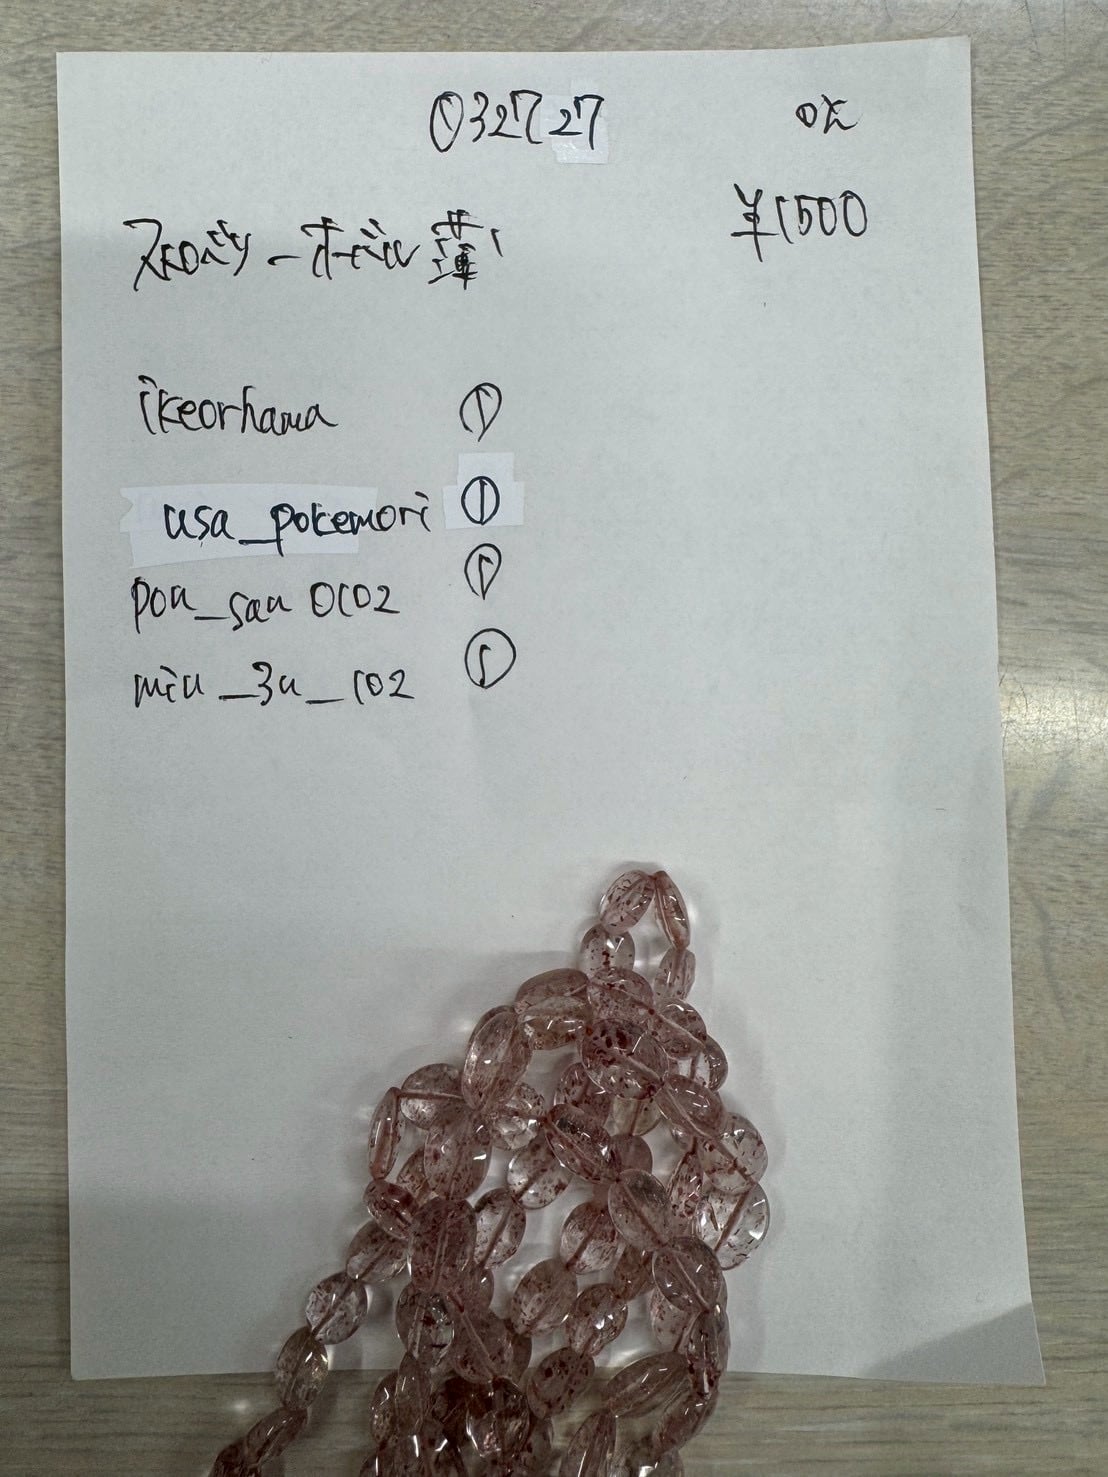 ①032727 OK
ストロベリーオーバル 薄 ¥1500
ikeorhama ①
usa_pokemori ①
pon_san 0102 ①
miu_3u_102 ①